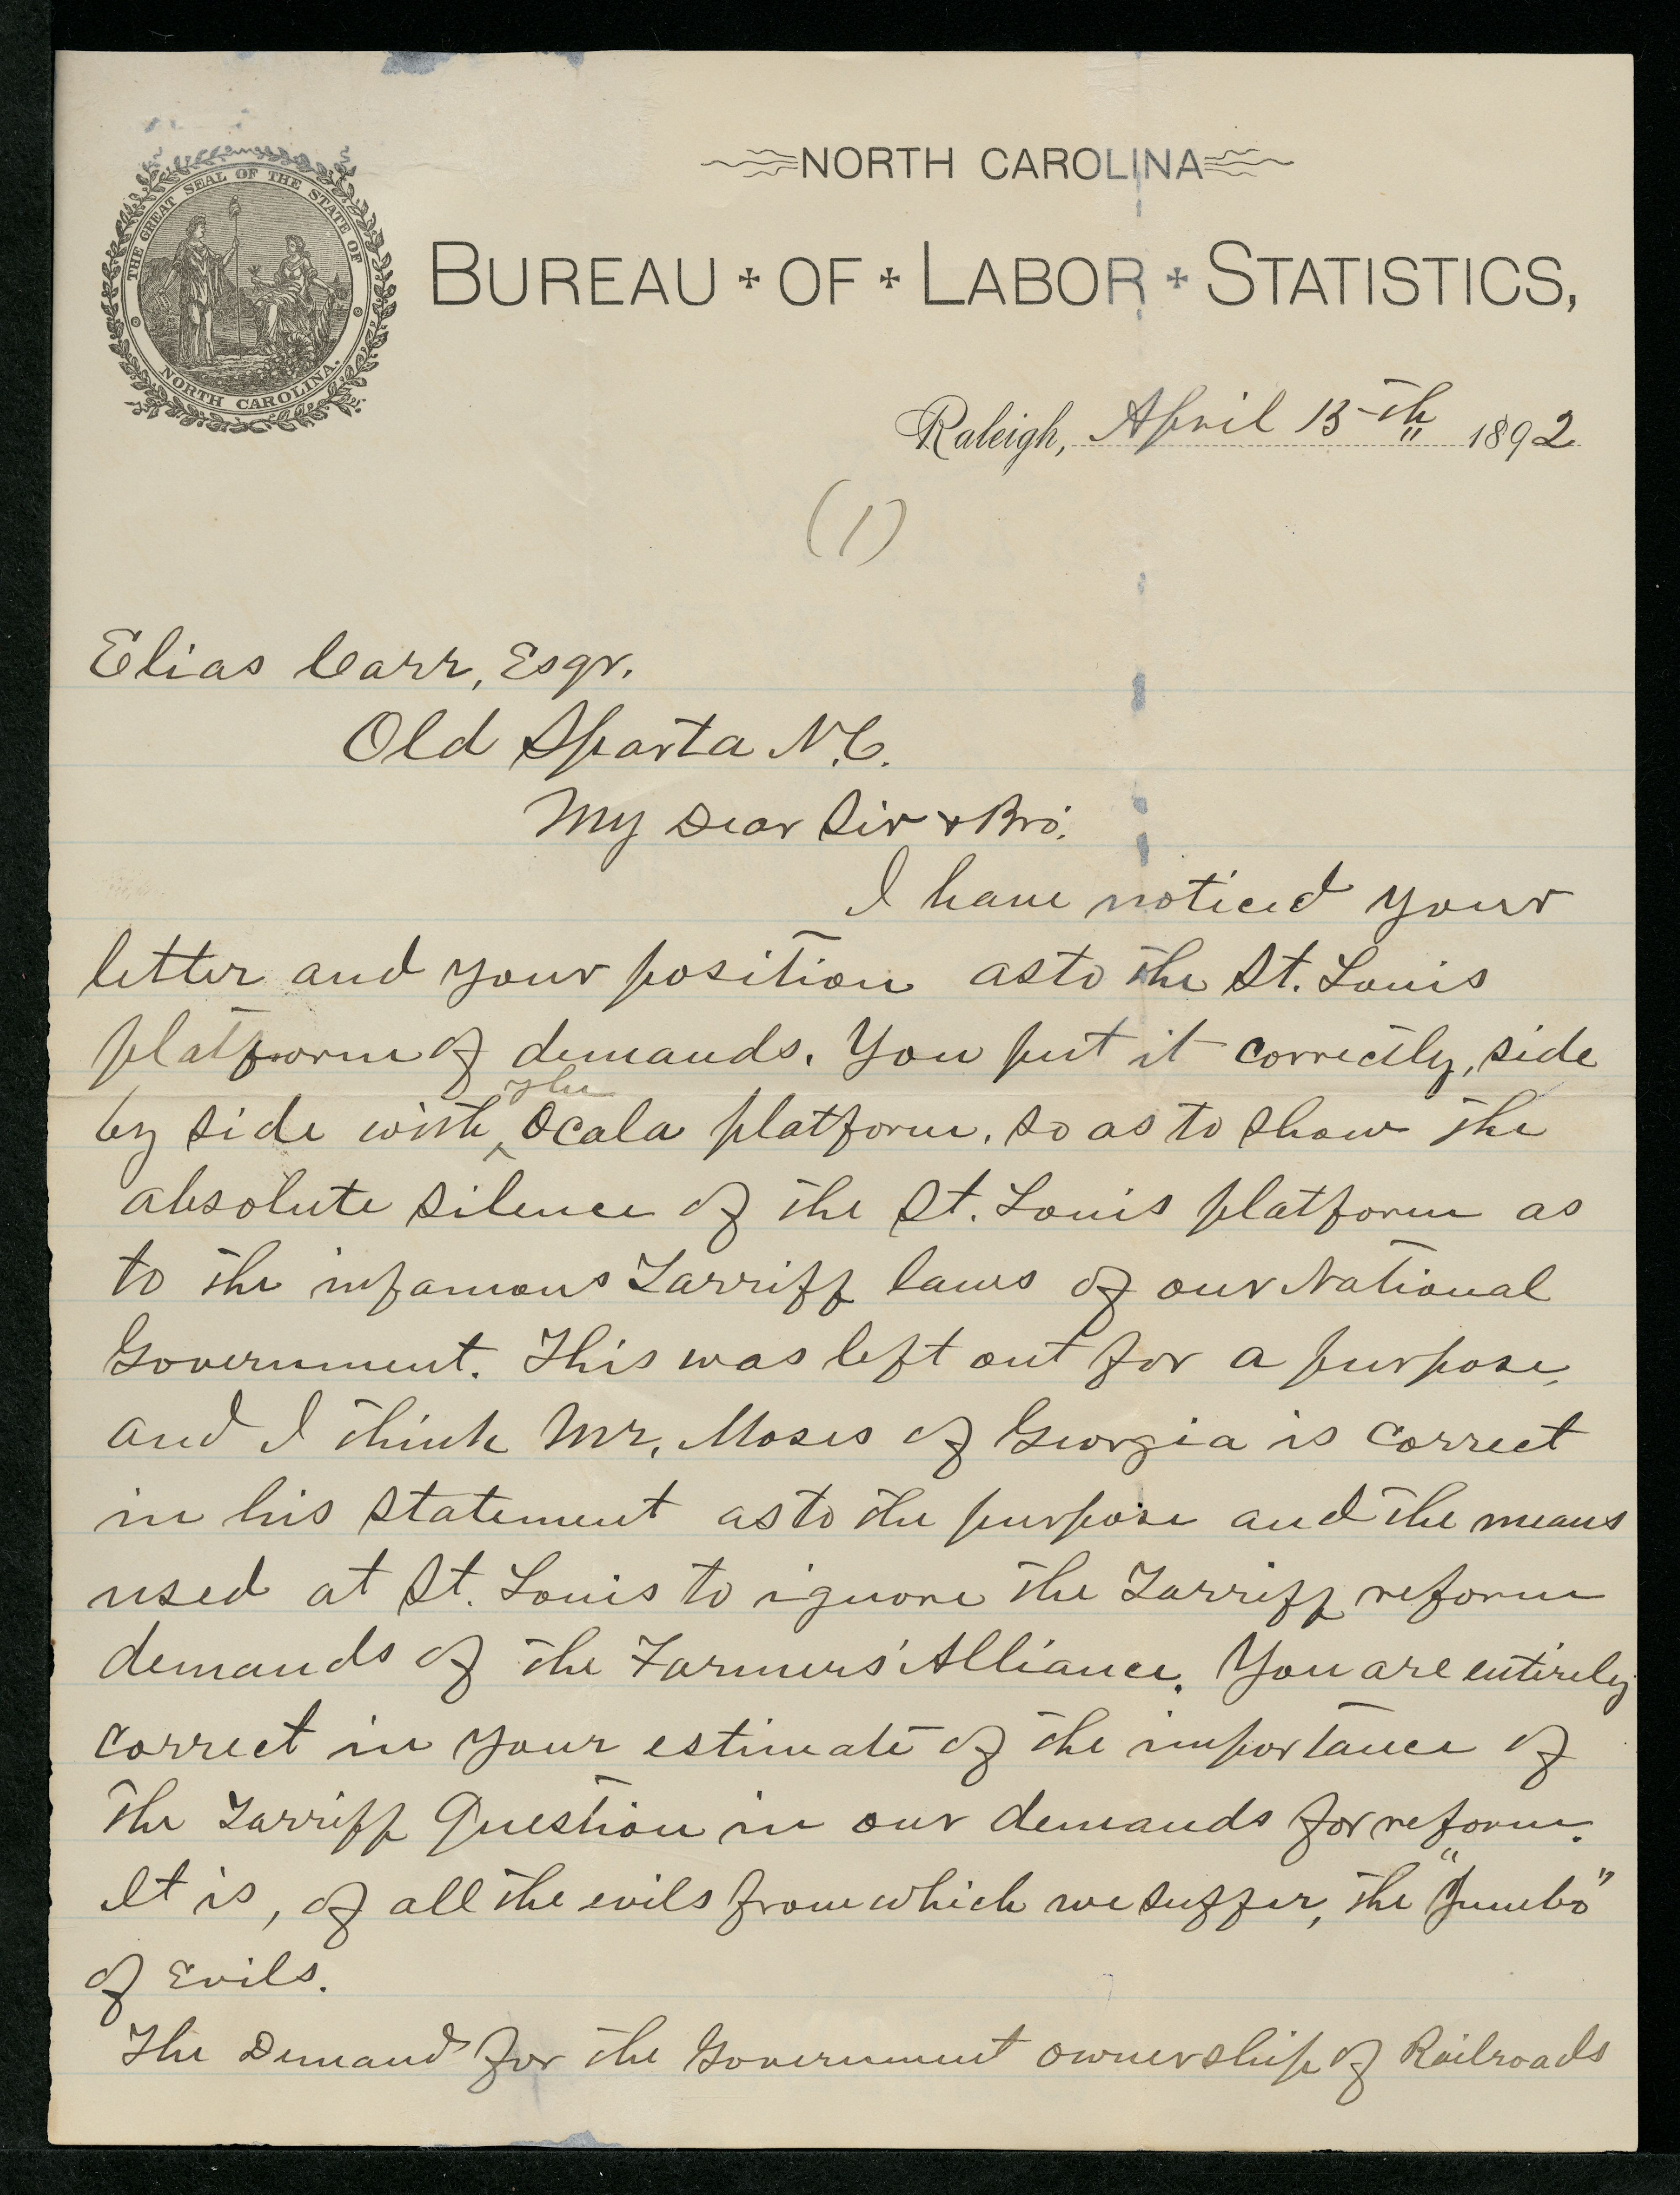 THE GREAT SEAL OF THE STATE OF
NORTH CAROLINA.
NORTH CAROLINA
BUREAU OF LABOR STATISTICS,
Raleigh, April 13th 1892
(1)
Elias Carr, Esqr.
Old Sparta N.C.
My Dear Sir & Bro.
I have noticed your
letter and your position as to the St. Louis
platform of demands. You put it correctly, side
by side with the Ocala platform. so as to show the
absolute silence of the St. Louis platform as
to the infamous Tarriff laws of our National
Government. This was left out for a purpose,
and I think Mr. Moses of Georgia is correct
in his statement as to the purpose and the means
used at St. Louis to ignore the Tarriff reform
demands of the Farmers' Alliance. You are entirely
correct in your estimate of the importance of
the Tarriff Question in our demands for reform.
It is, of all the evils from which we suffer, the "Jumbo"
of Evils.
The Demand for the Government ownership of Railroads